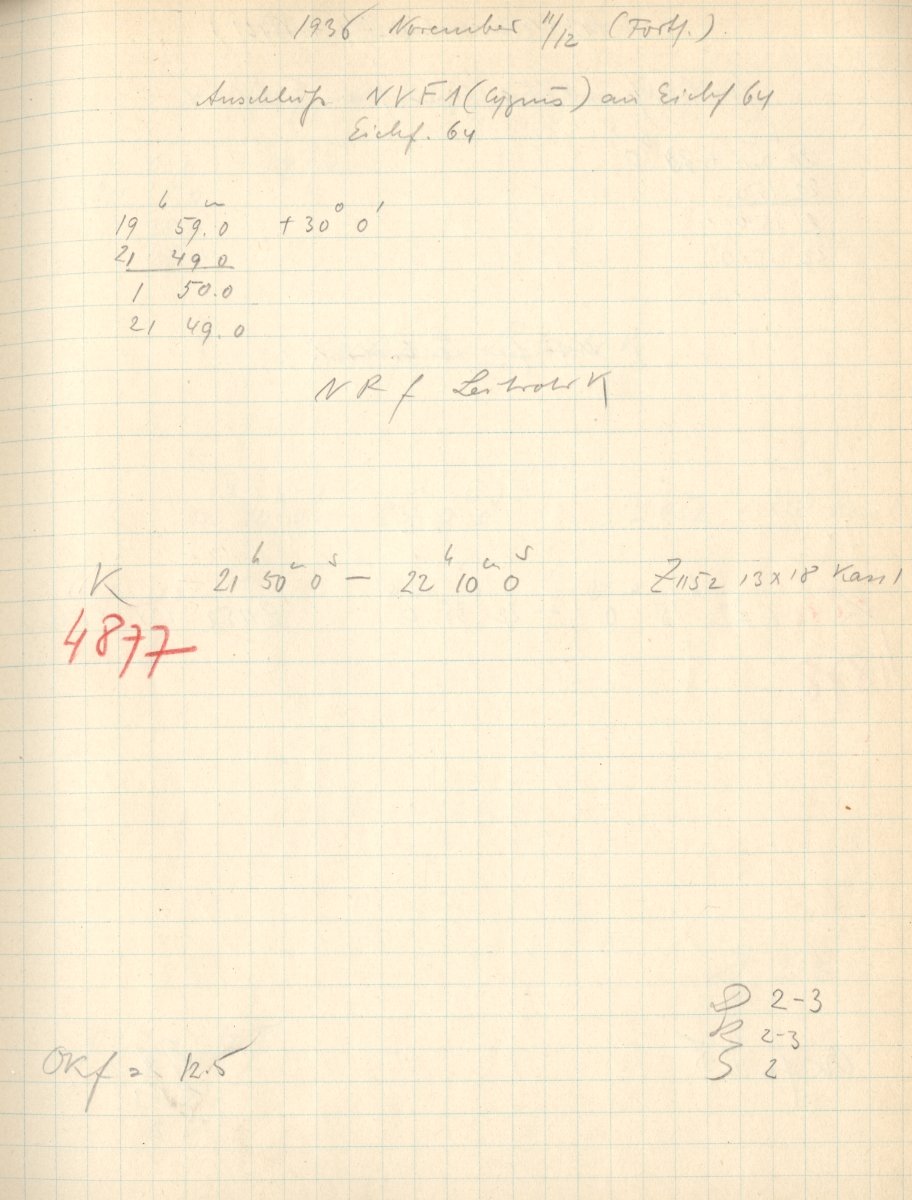 1936 November 11/12 (Forts.)
Anschluß NVF1 (Cygnus) an Eichf 64
Eichf. 64
19ʰ 59.ᵐ0 +30° 0'
21 49 0
1 50.0
21 49.0
NR f Leitrohr K
K 21ʰ 50ᵐ 0ˢ — 22ʰ 10ᵐ 0ˢ Z1152 13x18 Kass 1
4877
D 2-3
R 2-3
OKf = 12.5
S 2